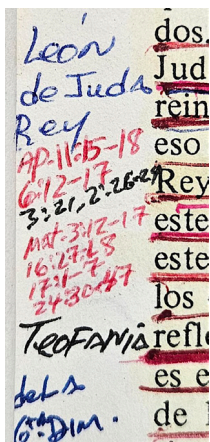 León
de Juda
Rey
AP. 11:15-18
6:12-17
3:21, 2:26-29
Mat. 3:12-17
16:27-28
17:1-7
24:30-47
TEOFANIA
de LA
6ta DIM.
dos.
Jud
rein
eso
Rey
este
este
los
refle
es e
de l